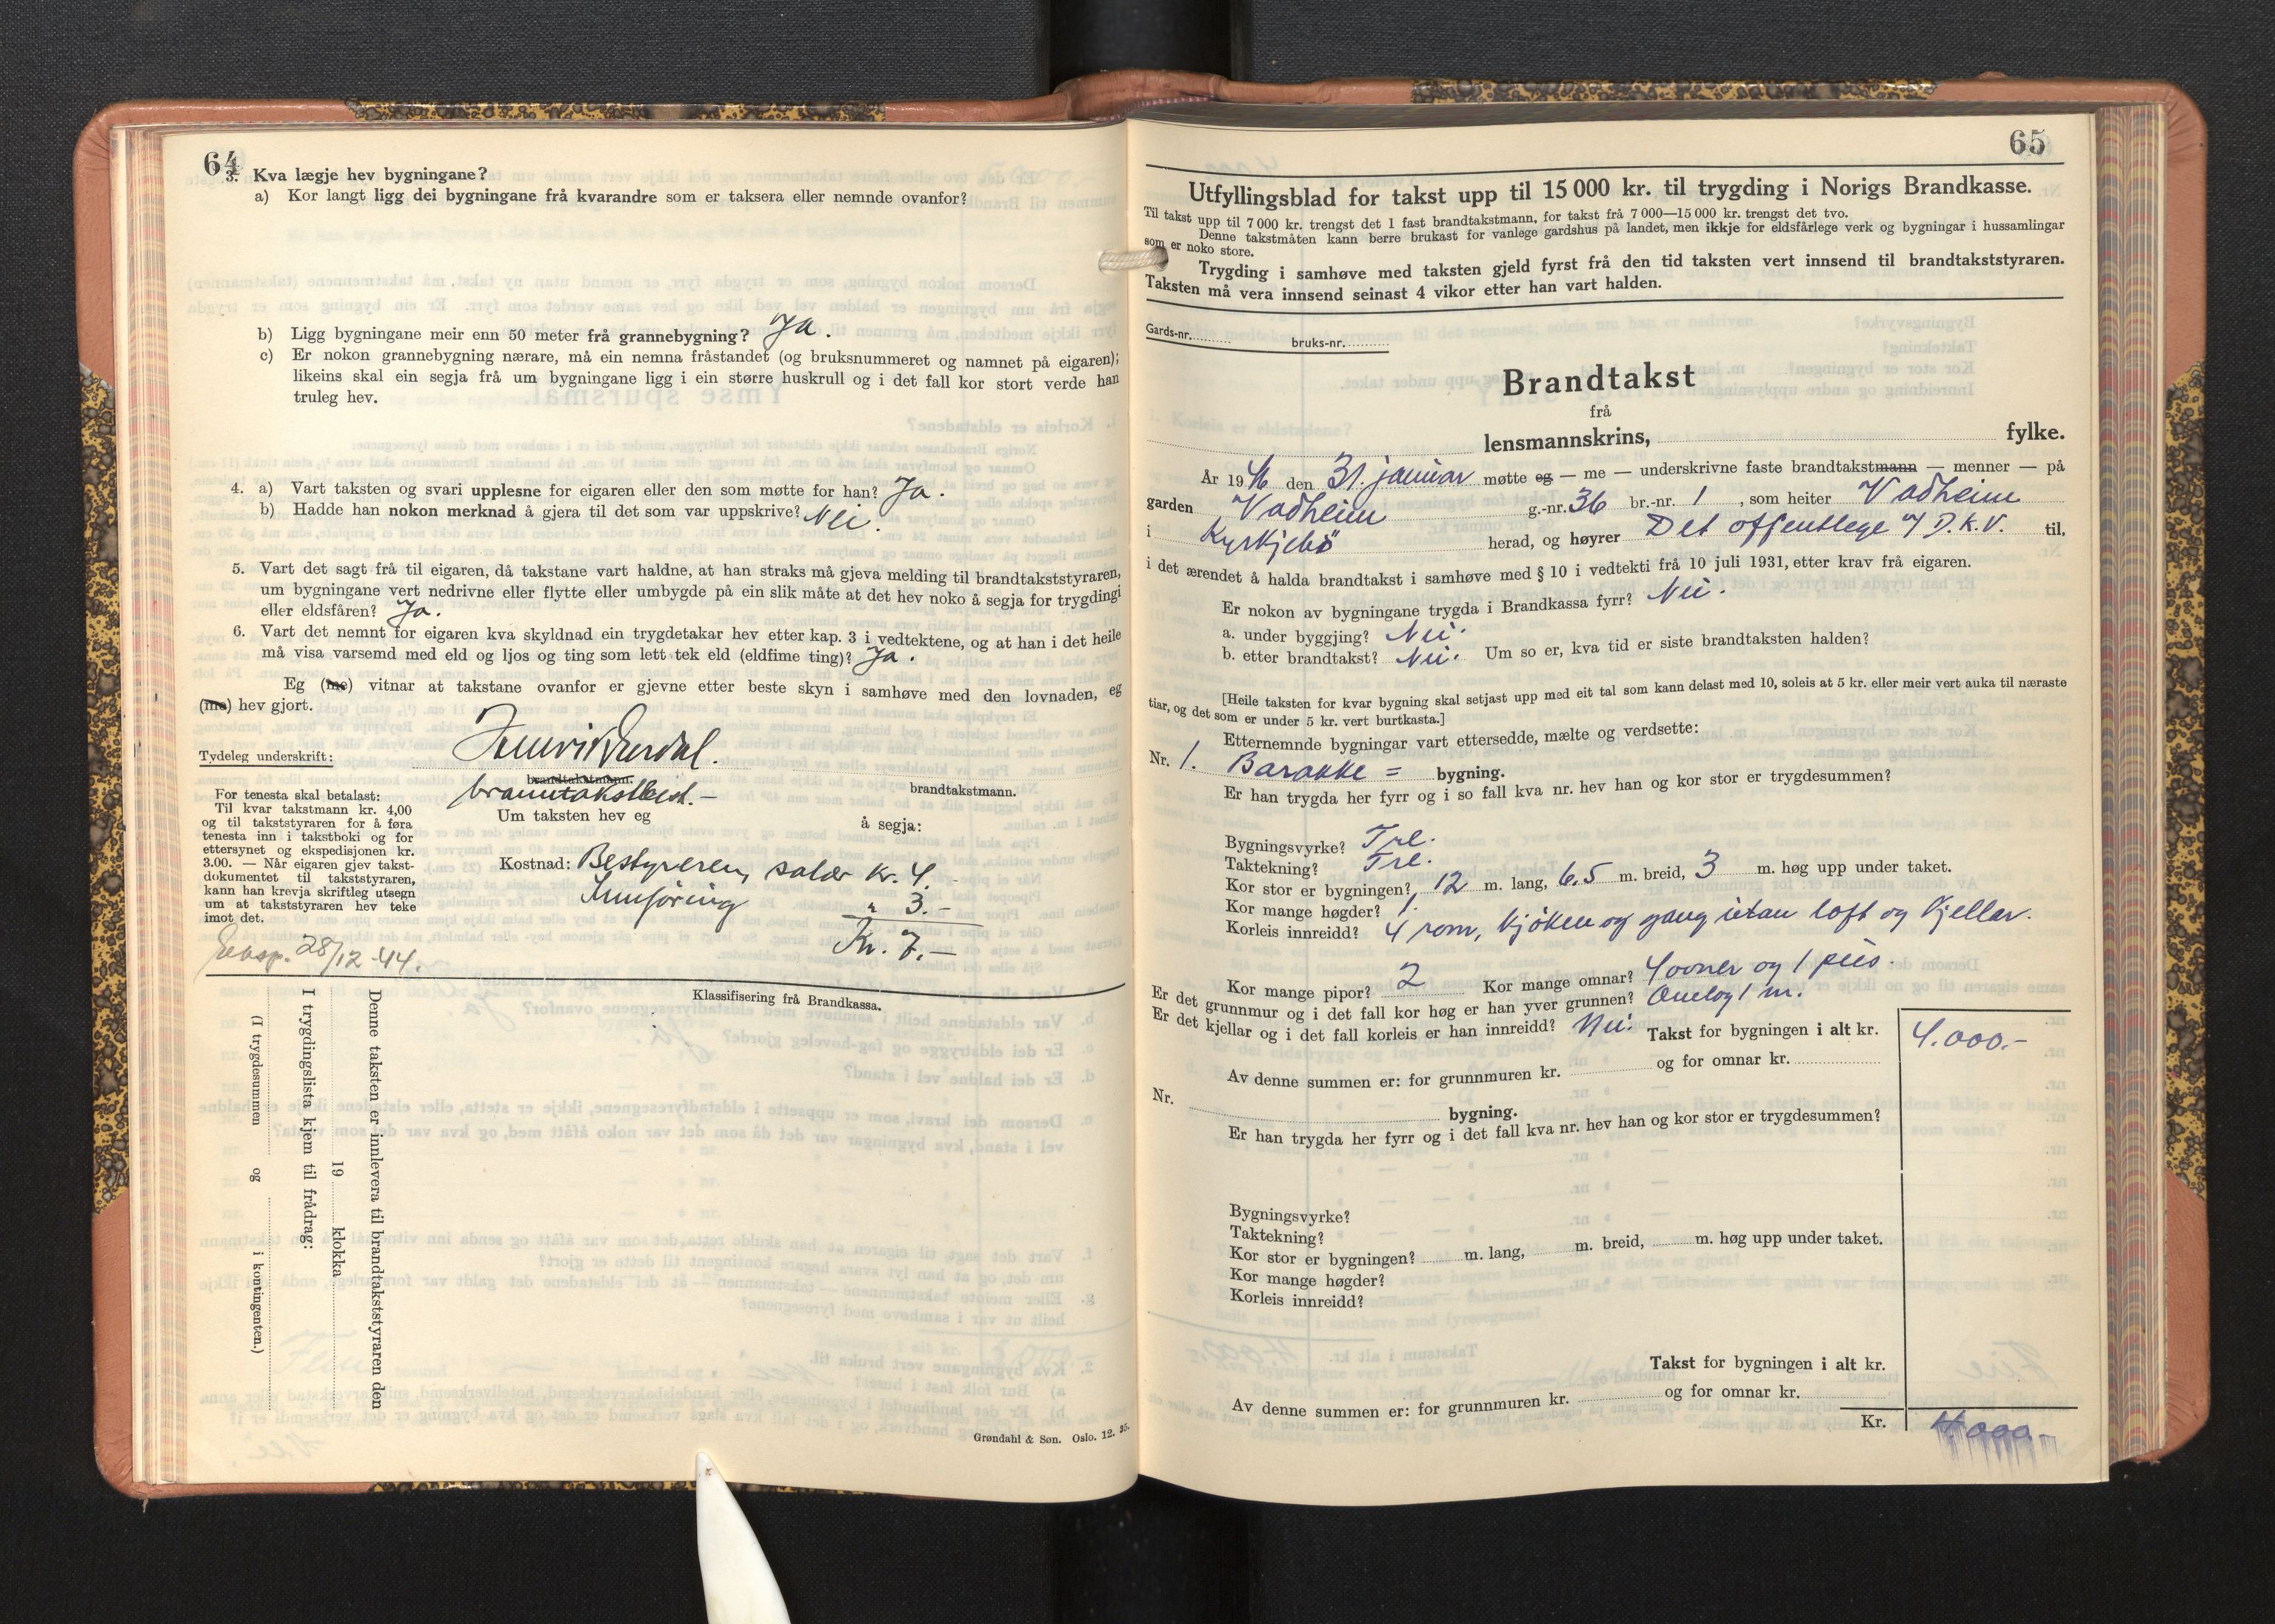 64
3. Kva lægje hev bygningane?
a) Kor langt ligg dei bygningane frå kvarandre som er taksera eller nemnde ovanfor?
b) Ligg bygningane meir enn 50 meter frå grannebygning? Ja.
c) Er nokon grannebygning nærare, må ein nemna fråstandet (og bruksnummeret og namnet på eigaren);
likeins skal ein segja frå um bygningane ligg i ein større huskrull og i det fall kor stort verde han
truleg hev.
4. a) Vart taksten og svari upplesne for eigaren eller den som møtte for han? Ja.
b) Hadde han nokon merknad å gjera til det som var uppskrive? Nei.
5. Vart det sagt frå til eigaren, då takstane vart haldne, at han straks må gjeva melding til brandtakststyraren,
um bygningane vert nedrivne eller flytte eller umbygde på ein slik måte at det hev noko å segja for trygdingi
eller eldsfåren? Ja.
6. Vart det nemnt for eigaren kva skyldnad ein trygdetakar hev etter kap. 3 i vedtektene, og at han i det heile
må visa varsemd med eld og ljos og ting som lett tek eld (eldfime ting)? Ja.
Eg (me) vitnar at takstane ovanfor er gjevne etter beste skyn i samhøve med den lovnaden, eg
(me) hev gjort.
Tydeleg underskrift:
brandtakstmann.
branntakstbest.-
brandtakstmann.
For tenesta skal betalast:
Til kvar takstmann kr. 4,00
og til takststyraren for å føra
tenesta inn i takstboki og for
ettersynet og ekspedisjonen kr.
3.00. — Når eigaren gjev takst-
dokumentet til takststyraren,
kann han krevja skriftleg utsegn
um at takststyraren hev teke
imot det.
Um taksten hev eg å segja:
Kostnad: Bestyreren, salær kr. 4.-
Innføring " 3.-
Kr. 7.-
Eksp. 28/12-44.
Klassifisering frå Brandkassa.
Denne taksten er innlevera til brandtakststyraren den
19 klokka
I trygdingslista kjem til frådrag:
(I trygdesummen og i kontingenten.)
Grøndahl & Søn. Oslo. 12. 35.
65
Utfyllingsblad for takst upp til 15 000 kr. til trygding i Norigs Brandkasse.
Til takst upp til 7 000 kr. trengst det 1 fast brandtakstmann, for takst frå 7 000—15 000 kr. trengst det tvo.
Denne takstmåten kann berre brukast for vanlege gardshus på landet, men ikkje for eldsfårlege verk og bygningar i hussamlingar
som er noko store.
Trygding i samhøve med taksten gjeld fyrst frå den tid taksten vert innsend til brandtakststyraren.
Taksten må vera innsend seinast 4 vikor etter han vart halden.
Gards-nr. bruks-nr.
Brandtakst
frå
lensmannskrins, fylke.
År 1946 den 31. januar møtte eg — me — underskrivne faste brandtakstmann — menner — på
garden Vadheim g.-nr. 36 br.-nr. 1, som heiter Vadheim
i Kyrkjebö herad, og høyrer Det offentlege v/ D.K.V. til,
i det ærendet å halda brandtakst i samhøve med § 10 i vedtekti frå 10 juli 1931, etter krav frå eigaren.
Er nokon av bygningane trygda i Brandkassa fyrr? Nei.
a. under byggjing? Nei.
b. etter brandtakst? Nei. Um so er, kva tid er siste brandtaksten halden?
[Heile taksten for kvar bygning skal setjast upp med eit tal som kann delast med 10, soleis at 5 kr. eller meir vert auka til næraste
tiar, og det som er under 5 kr. vert burtkasta.]
Etternemnde bygningar vart ettersedde, mælte og verdsette:
Nr. 1. Barakke = bygning.
Er han trygda her fyrr og i so fall kva nr. hev han og kor stor er trygdesummen?
Bygningsvyrke? Tre.
Taktekning? Tre.
Kor stor er bygningen? 12 m. lang, 6.5 m. breid, 3 m. høg upp under taket.
Kor mange høgder? 1.
Korleis innreidd? 4 rom, kjöken og gang utan loft og kjellar.
Kor mange pipor? 2 Kor mange omnar? 4 ovner og 1 peis.
Er det grunnmur og i det fall kor høg er han yver grunnen? Omlag 1 m.
Er det kjellar og i det fall korleis er han innreidd? Nei. Takst for bygningen i alt kr. 4.000.-
Av denne summen er: for grunnmuren kr. og for omnar kr.
Nr. bygning.
Er han trygda her fyrr og i det fall kva nr. hev han og kor stor er trygdesummen?
Bygningsvyrke?
Taktekning?
Kor stor er bygningen? m. lang, m. breid, m. høg upp under taket.
Kor mange høgder?
Korleis innreidd?
Takst for bygningen i alt kr.
Av denne summen er: for grunnmuren kr. og for omnar kr.
Kr. 4.000.-